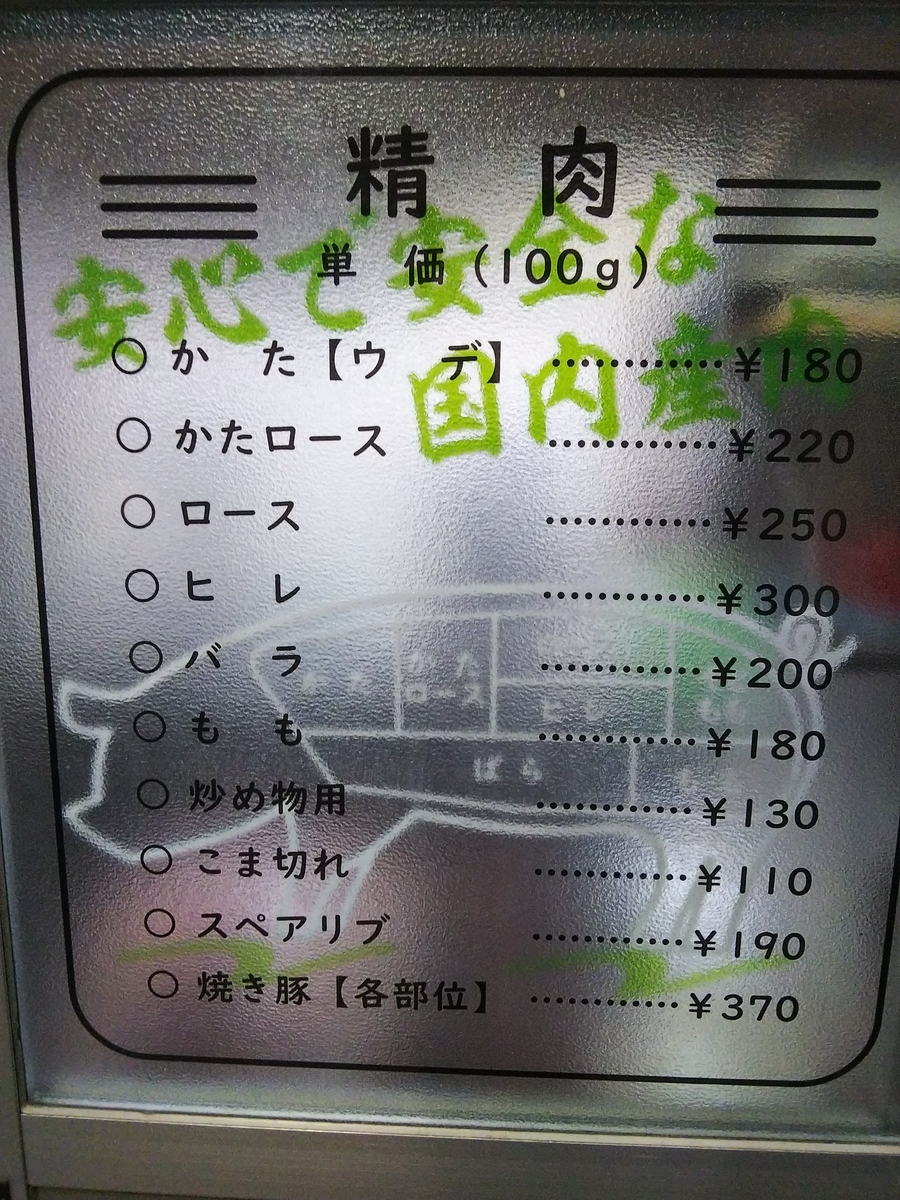 精 肉
単 価 (100g)
安心で安全な
国内産肉
○ か た【ウ デ】 …………¥180
○ かたロース …………¥220
○ ロース …………¥250
○ ヒ レ …………¥300
○ バ ラ …………¥200
○ も も …………¥180
○ 炒め物用 …………¥130
○ こま切れ …………¥110
○ スペアリブ …………¥190
○ 焼き豚【各部位】 …………¥370
かた
ロース
ばら